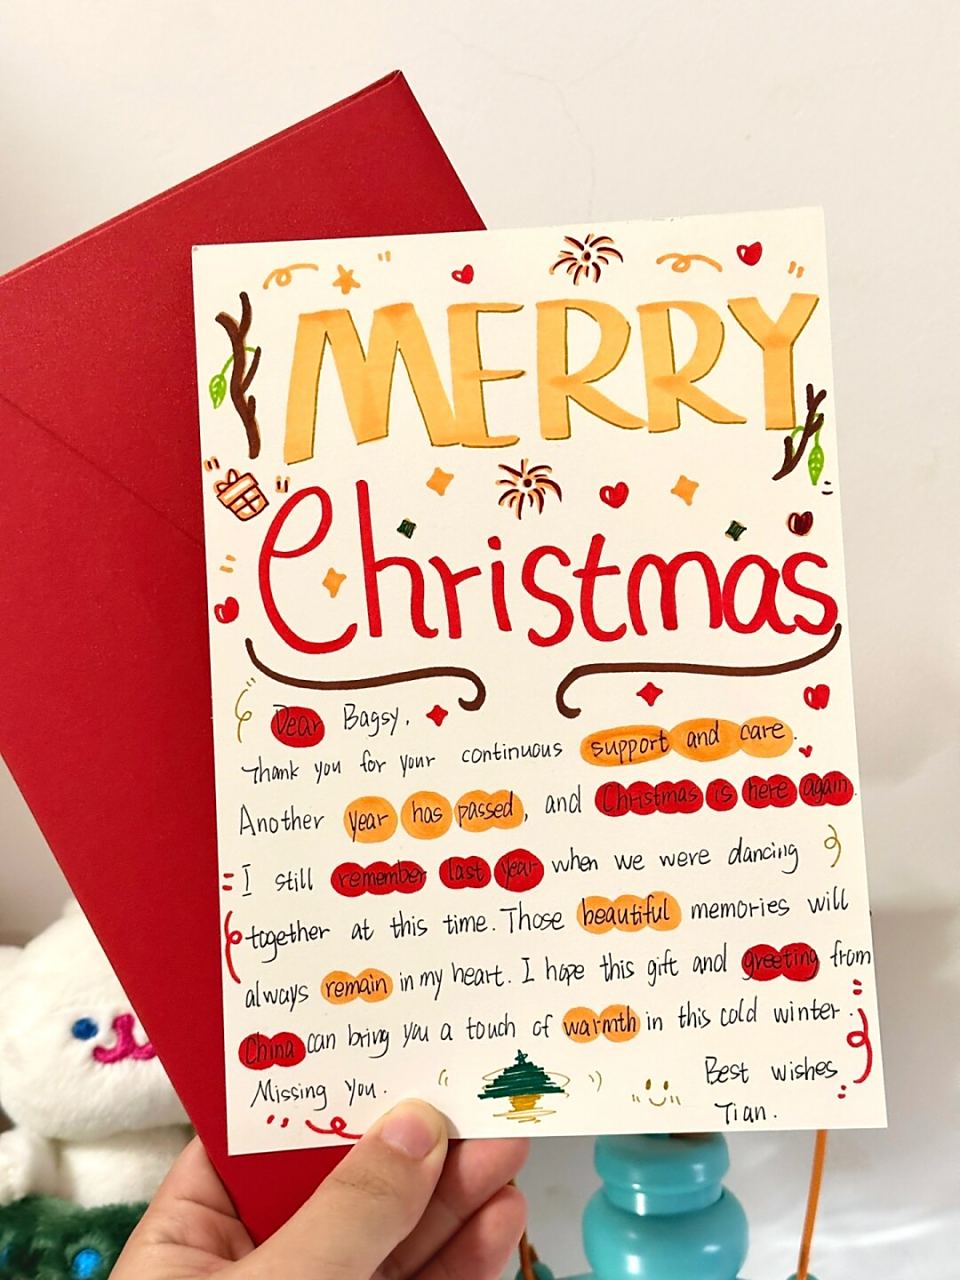 MERRY
Christmas
Dear Bagsy.
Thank you for your continuous support and care.
Another year has passed, and Christmas is here again.
I still remember last year when we were dancing
together at this time. Those beautiful memories will
always remain in my heart. I hope this gift and greeting from
China can bring you a touch of warmth in this cold winter.
Missing you.
Best wishes
Tian.